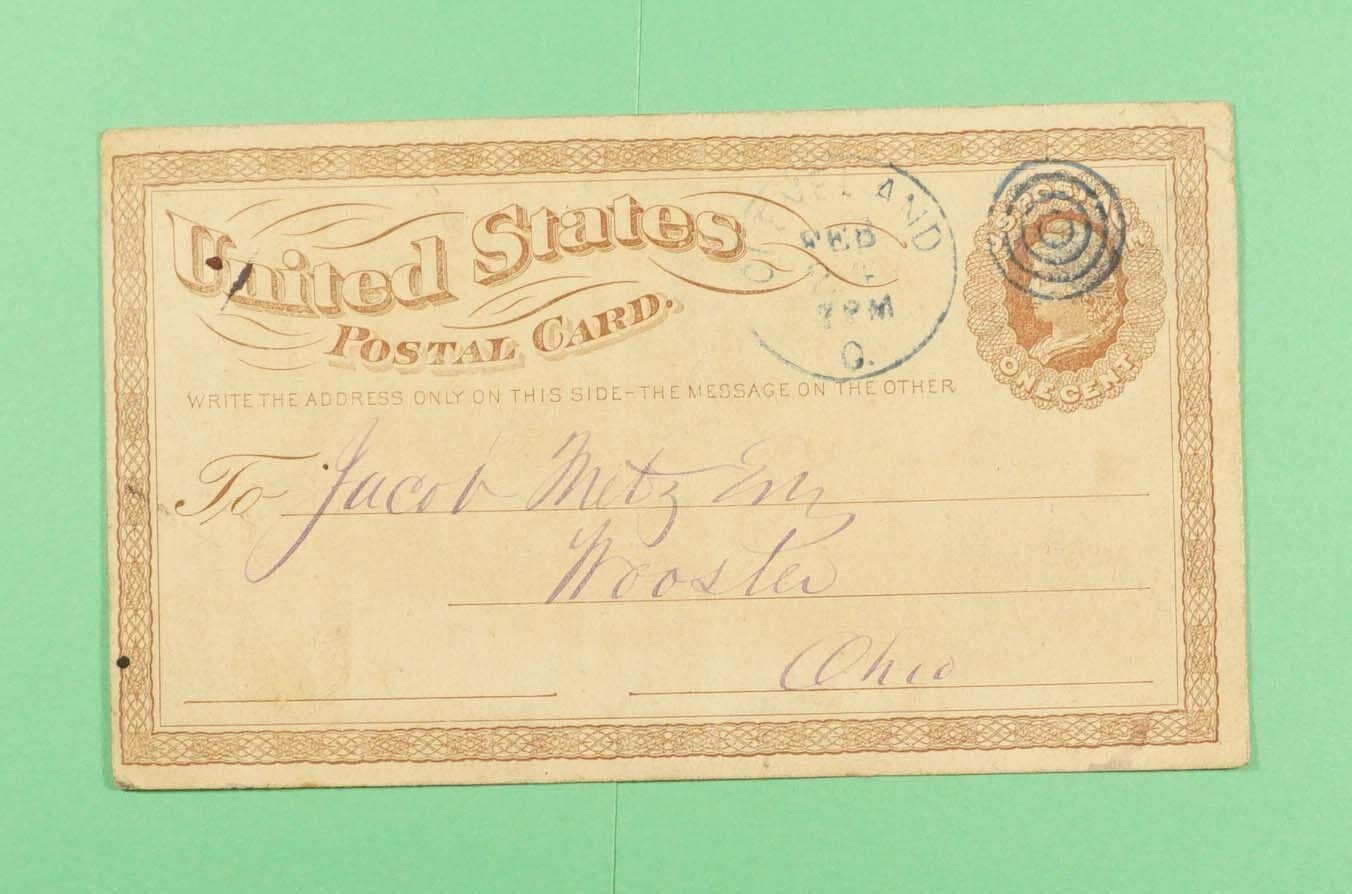 United States
POSTAL CARD.
CLEVELAND
FEB
24
7 PM
O.
U.S. POSTAGE
ONE CENT
WRITE THE ADDRESS ONLY ON THIS SIDE–THE MESSAGE ON THE OTHER
To Jacob Metz Esq
Wooster
Ohio